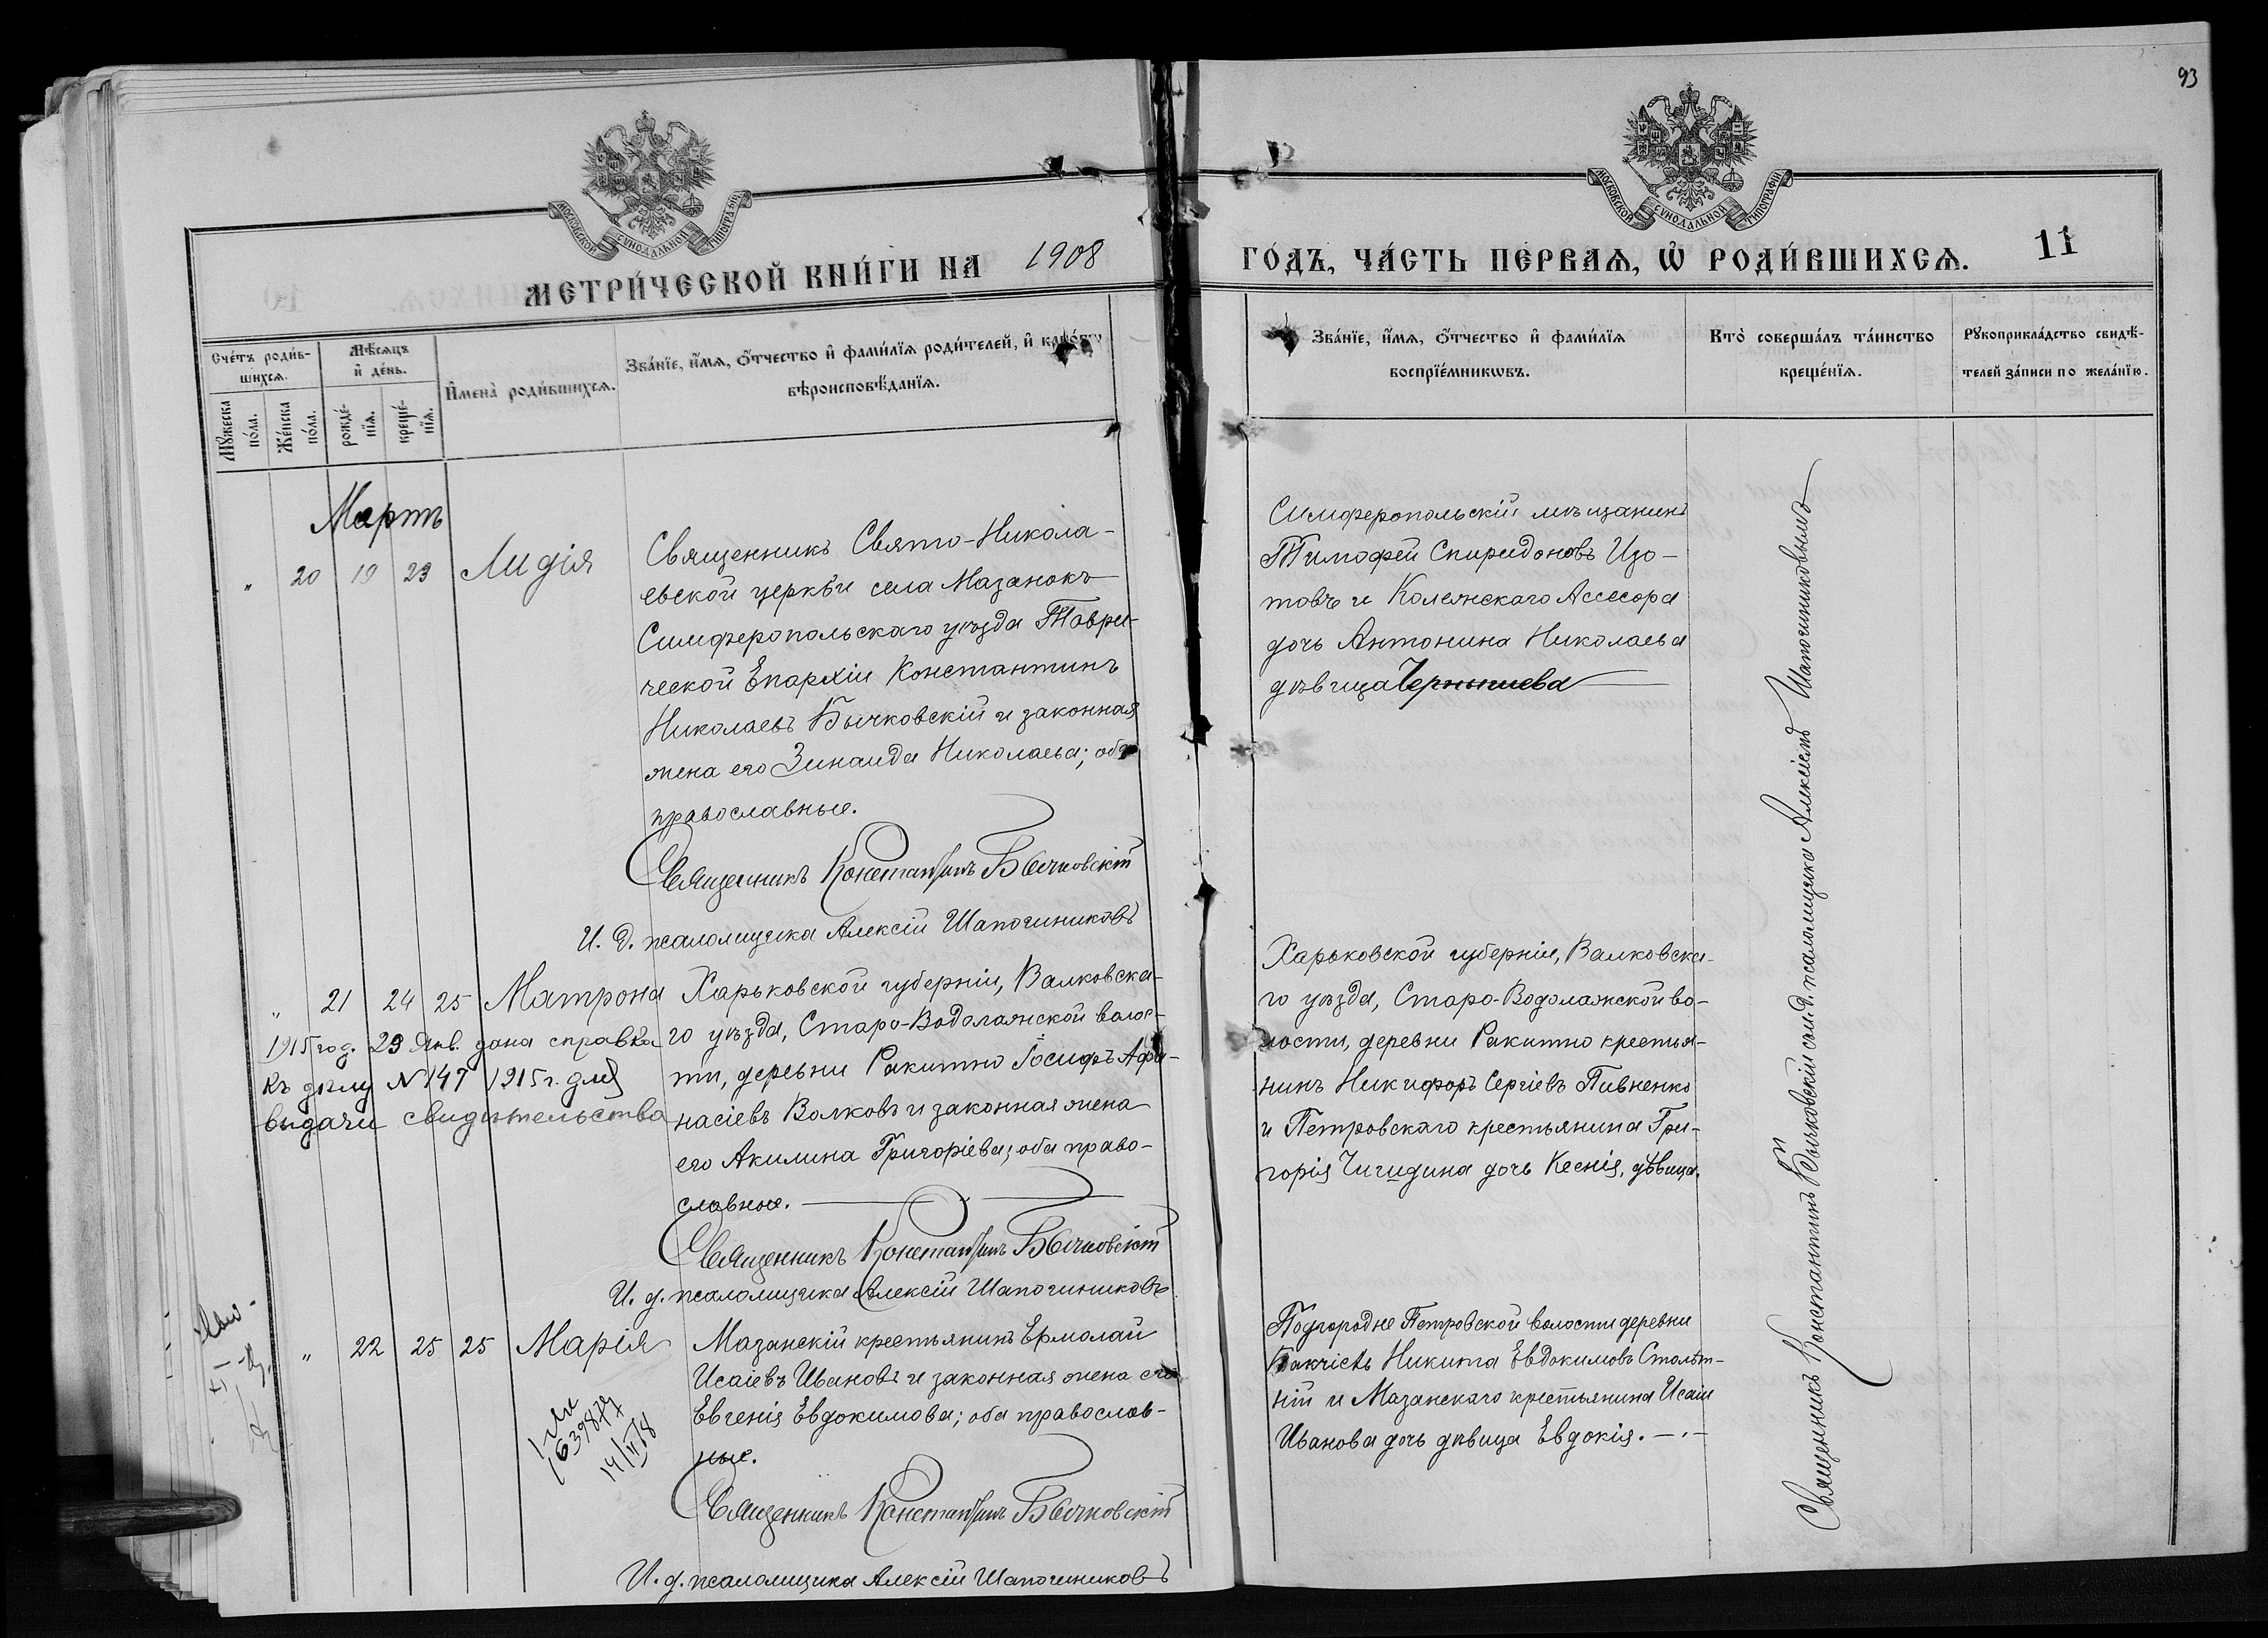 93
МОСКОВСКОЙ СѴНОДАЛЬНОЙ ТИПОГРАФІИ
МОСКОВСКОЙ СѴНОДАЛЬНОЙ ТИПОГРАФІИ
МЕТРИ́ЧЕСКОЙ КНИ́ГИ НА 1908
ГО́ДЪ, ЧА́СТЬ ПЕ́РВАЯ, Ѡ҆ РОДИ́ВШИХСЯ.
11
Сче́тъ роди́в-
шихся.
Мꙋ́жеска по́ла.
Же́нска по́ла.
Мѣ́сяцъ
и҆ де́нь.
рожде́-
нїя.
креще́-
нїя.
И҆мена̀ роди́вшихся.
Зва́нїе, и҆́мя, ѻ҆́тчество и҆ фами́лїя роди́телей, и҆ како́гѡ
вѣроисповѣ́данїя.
Зва́нїе, и҆́мя, ѻ҆́тчество и҆ фами́лїя
воспрїе́мникѡвъ.
Кто̀ соверша́лъ та́инство
креще́нїя.
Рꙋкоприкла́дство свидѣ́-
телей за́писи по жела́нїю.
Мартъ
" 20 19 23 Лидія
Священникъ Свято-Никола-
евской церкви села Мазанокъ
Симферопольскаго уѣзда Таври-
ческой Епархіи Константинъ
Николаевъ Бычковскій и законная
жена его Зинаида Николаева; оба
православные.
Священникъ Константинъ Бычковскій
И. д. псаломщика Алексій Шапочниковъ
Симферопольскій мѣщанинъ
Тимофей Спиридоновъ Изо-
товъ и Колежскаго Ассесора
дочь Антонина Николаева
дѣвица Чернышева
" 21 24 25 Матрона
1915 год. 29 Янв. дана справка
къ дѣлу № 147 1915 г. для
выдачи свидѣтельства
Харьковской губерніи, Валковска-
го уѣзда, Старо-Водолажской волос-
ти, деревни Ракитно Іосифъ Афа-
насіевъ Волковъ и законная жена
его Акилина Григоріева; оба право-
славные.
Священникъ Константинъ Бычковскій
И. д. псаломщика Алексій Шапочниковъ
Харьковской губерніи, Валковска-
го уѣзда, Старо-Водолажской во-
лости, деревни Ракитно крестья-
нинъ Никифоръ Сергіевъ Пивненко
и Петровскаго крестьянина Гри-
горія Чигидина дочь Ксенія, дѣвица.
" 22 25 25 Марія
639879
14/II 18
Мазанскій крестьянинъ Ермолай
Исаіевъ Ивановъ и законная жена его
Евгенія Евдокимова; оба православ-
ные.
Священникъ Константинъ Бычковскій
И. д. псаломщика Алексій Шапочниковъ
Подгородне Петровской волости деревни
Никита Евдокимовъ
и Мазанскаго крестьянина Исаіи
Иванова дочь дѣвица Евдокія.
Священникъ Константинъ Бычковскій съ и. д. псаломщика Алексіемъ Шапочниковымъ